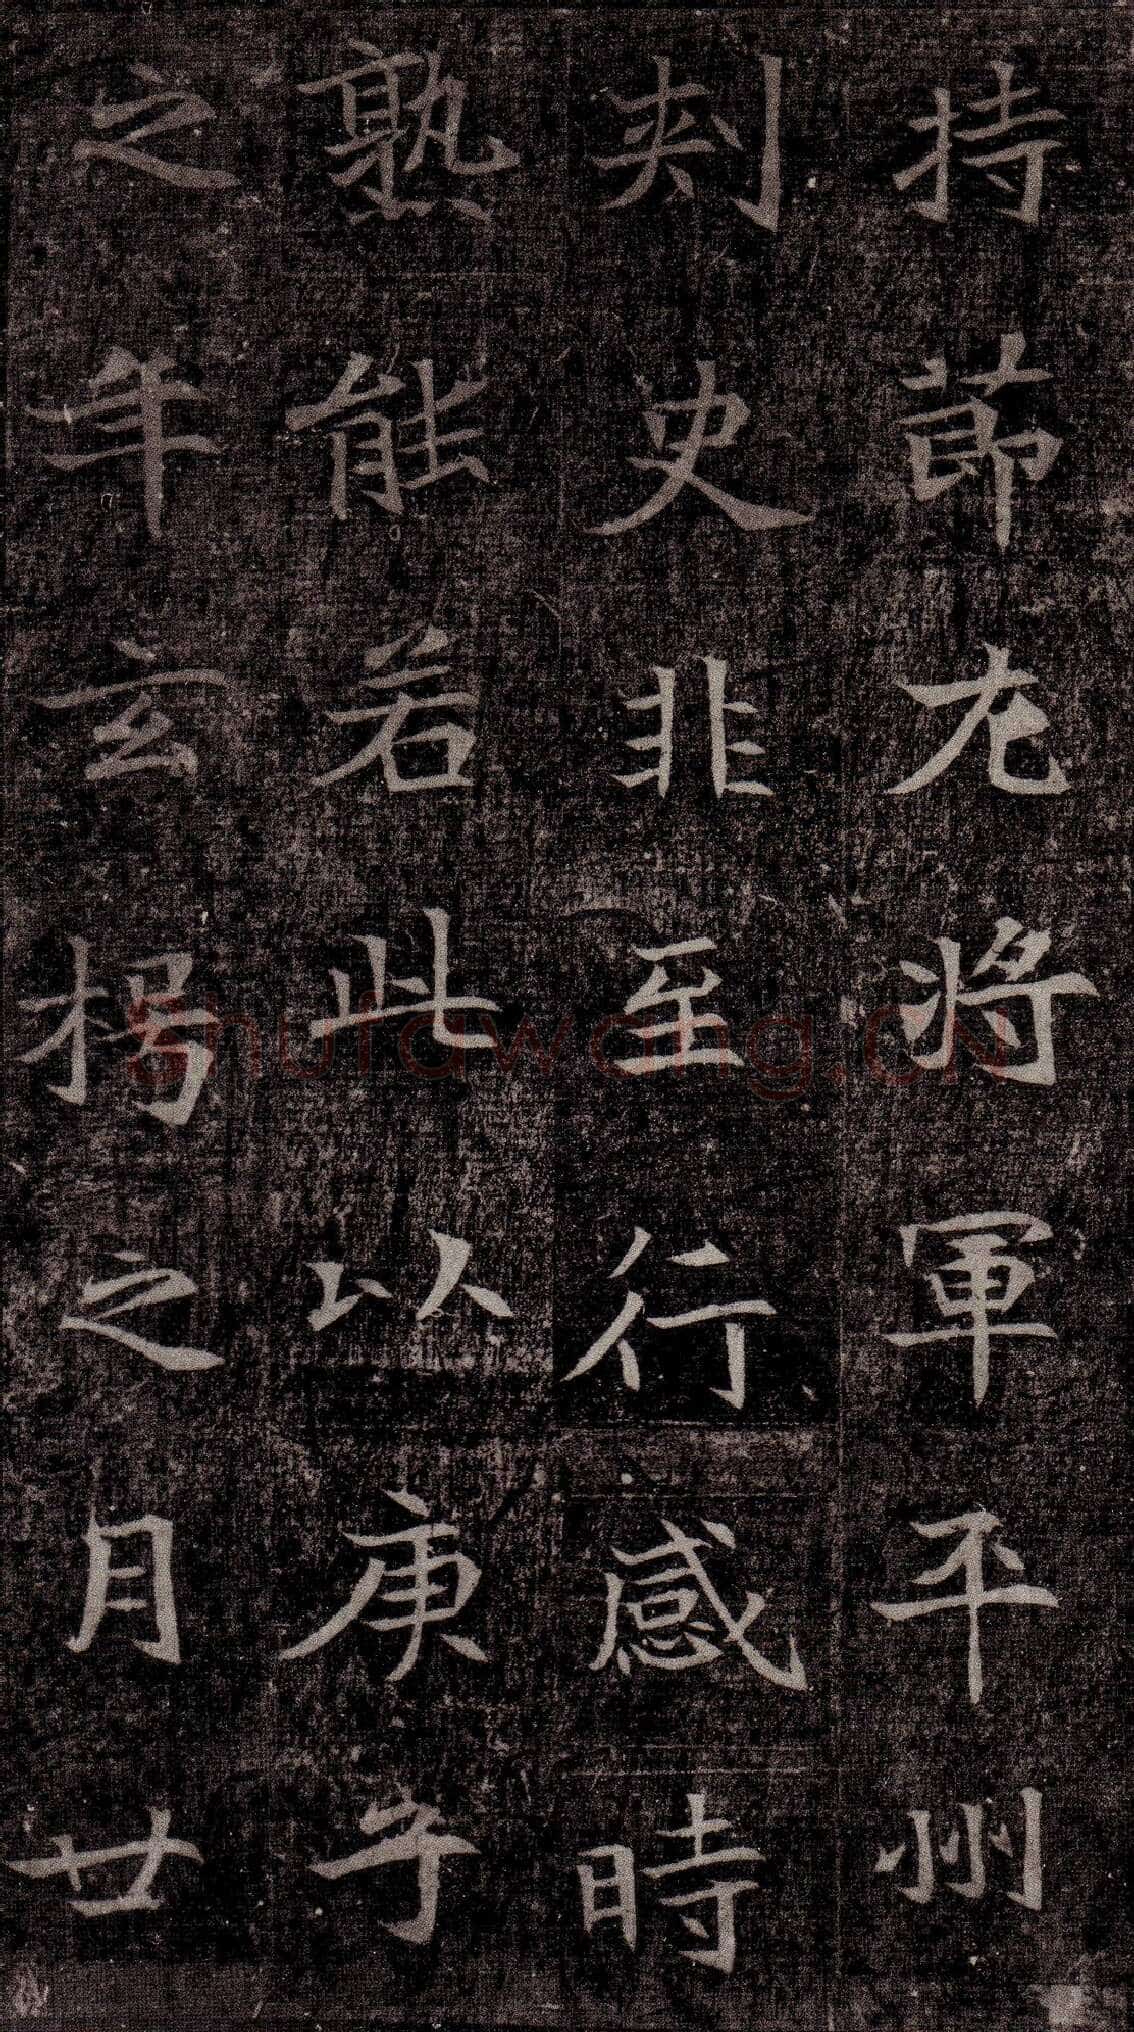 持節左將軍平州
刺史非至行感時
熟能若此以庚子
之年玄枵之月廿
shufawang.CN